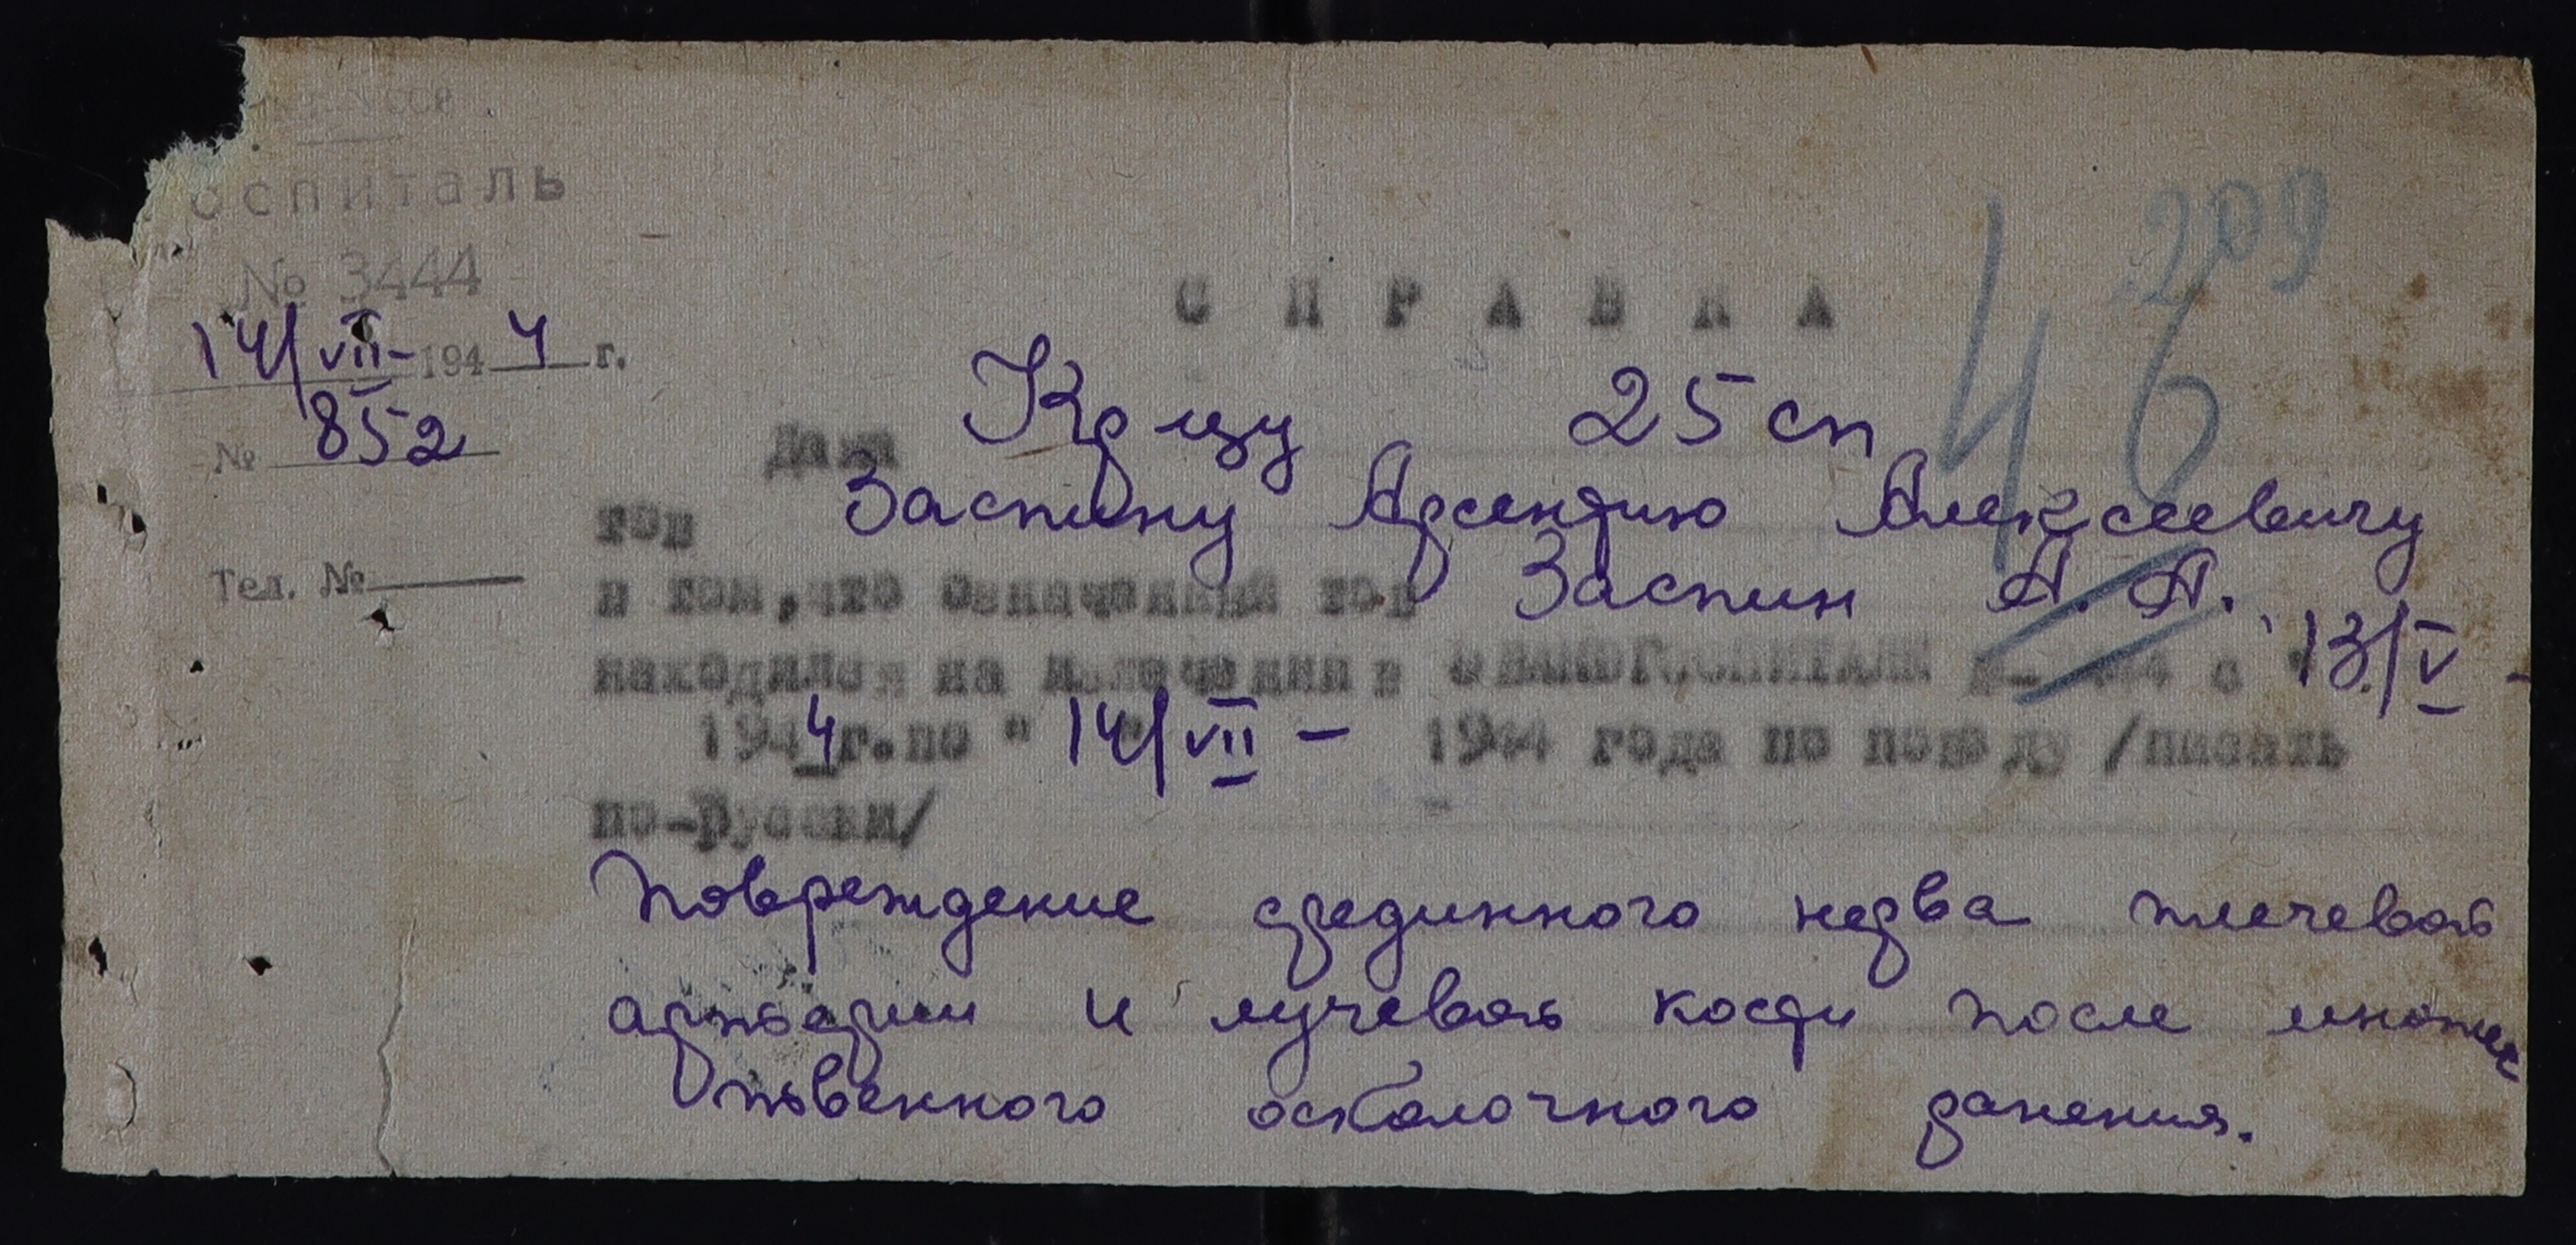 оспиталь
№ 3444
14/VII-1944 г.
№ 852
Тел. №
209
46
СПРАВКА
Дана Кр-цу 25 сп
тов Заспину Арсентию Алексеевичу
в том, что означенный тов Заспин А. А.
находился на излечении в эвакогоспитале с 13/V -
1944 г. по " 14/VII - 1944 года по поводу /писать
по-русски/
Повреждение срединного нерва плечевой
артерии и лучевой кости после множес
твенного осколочного ранения.